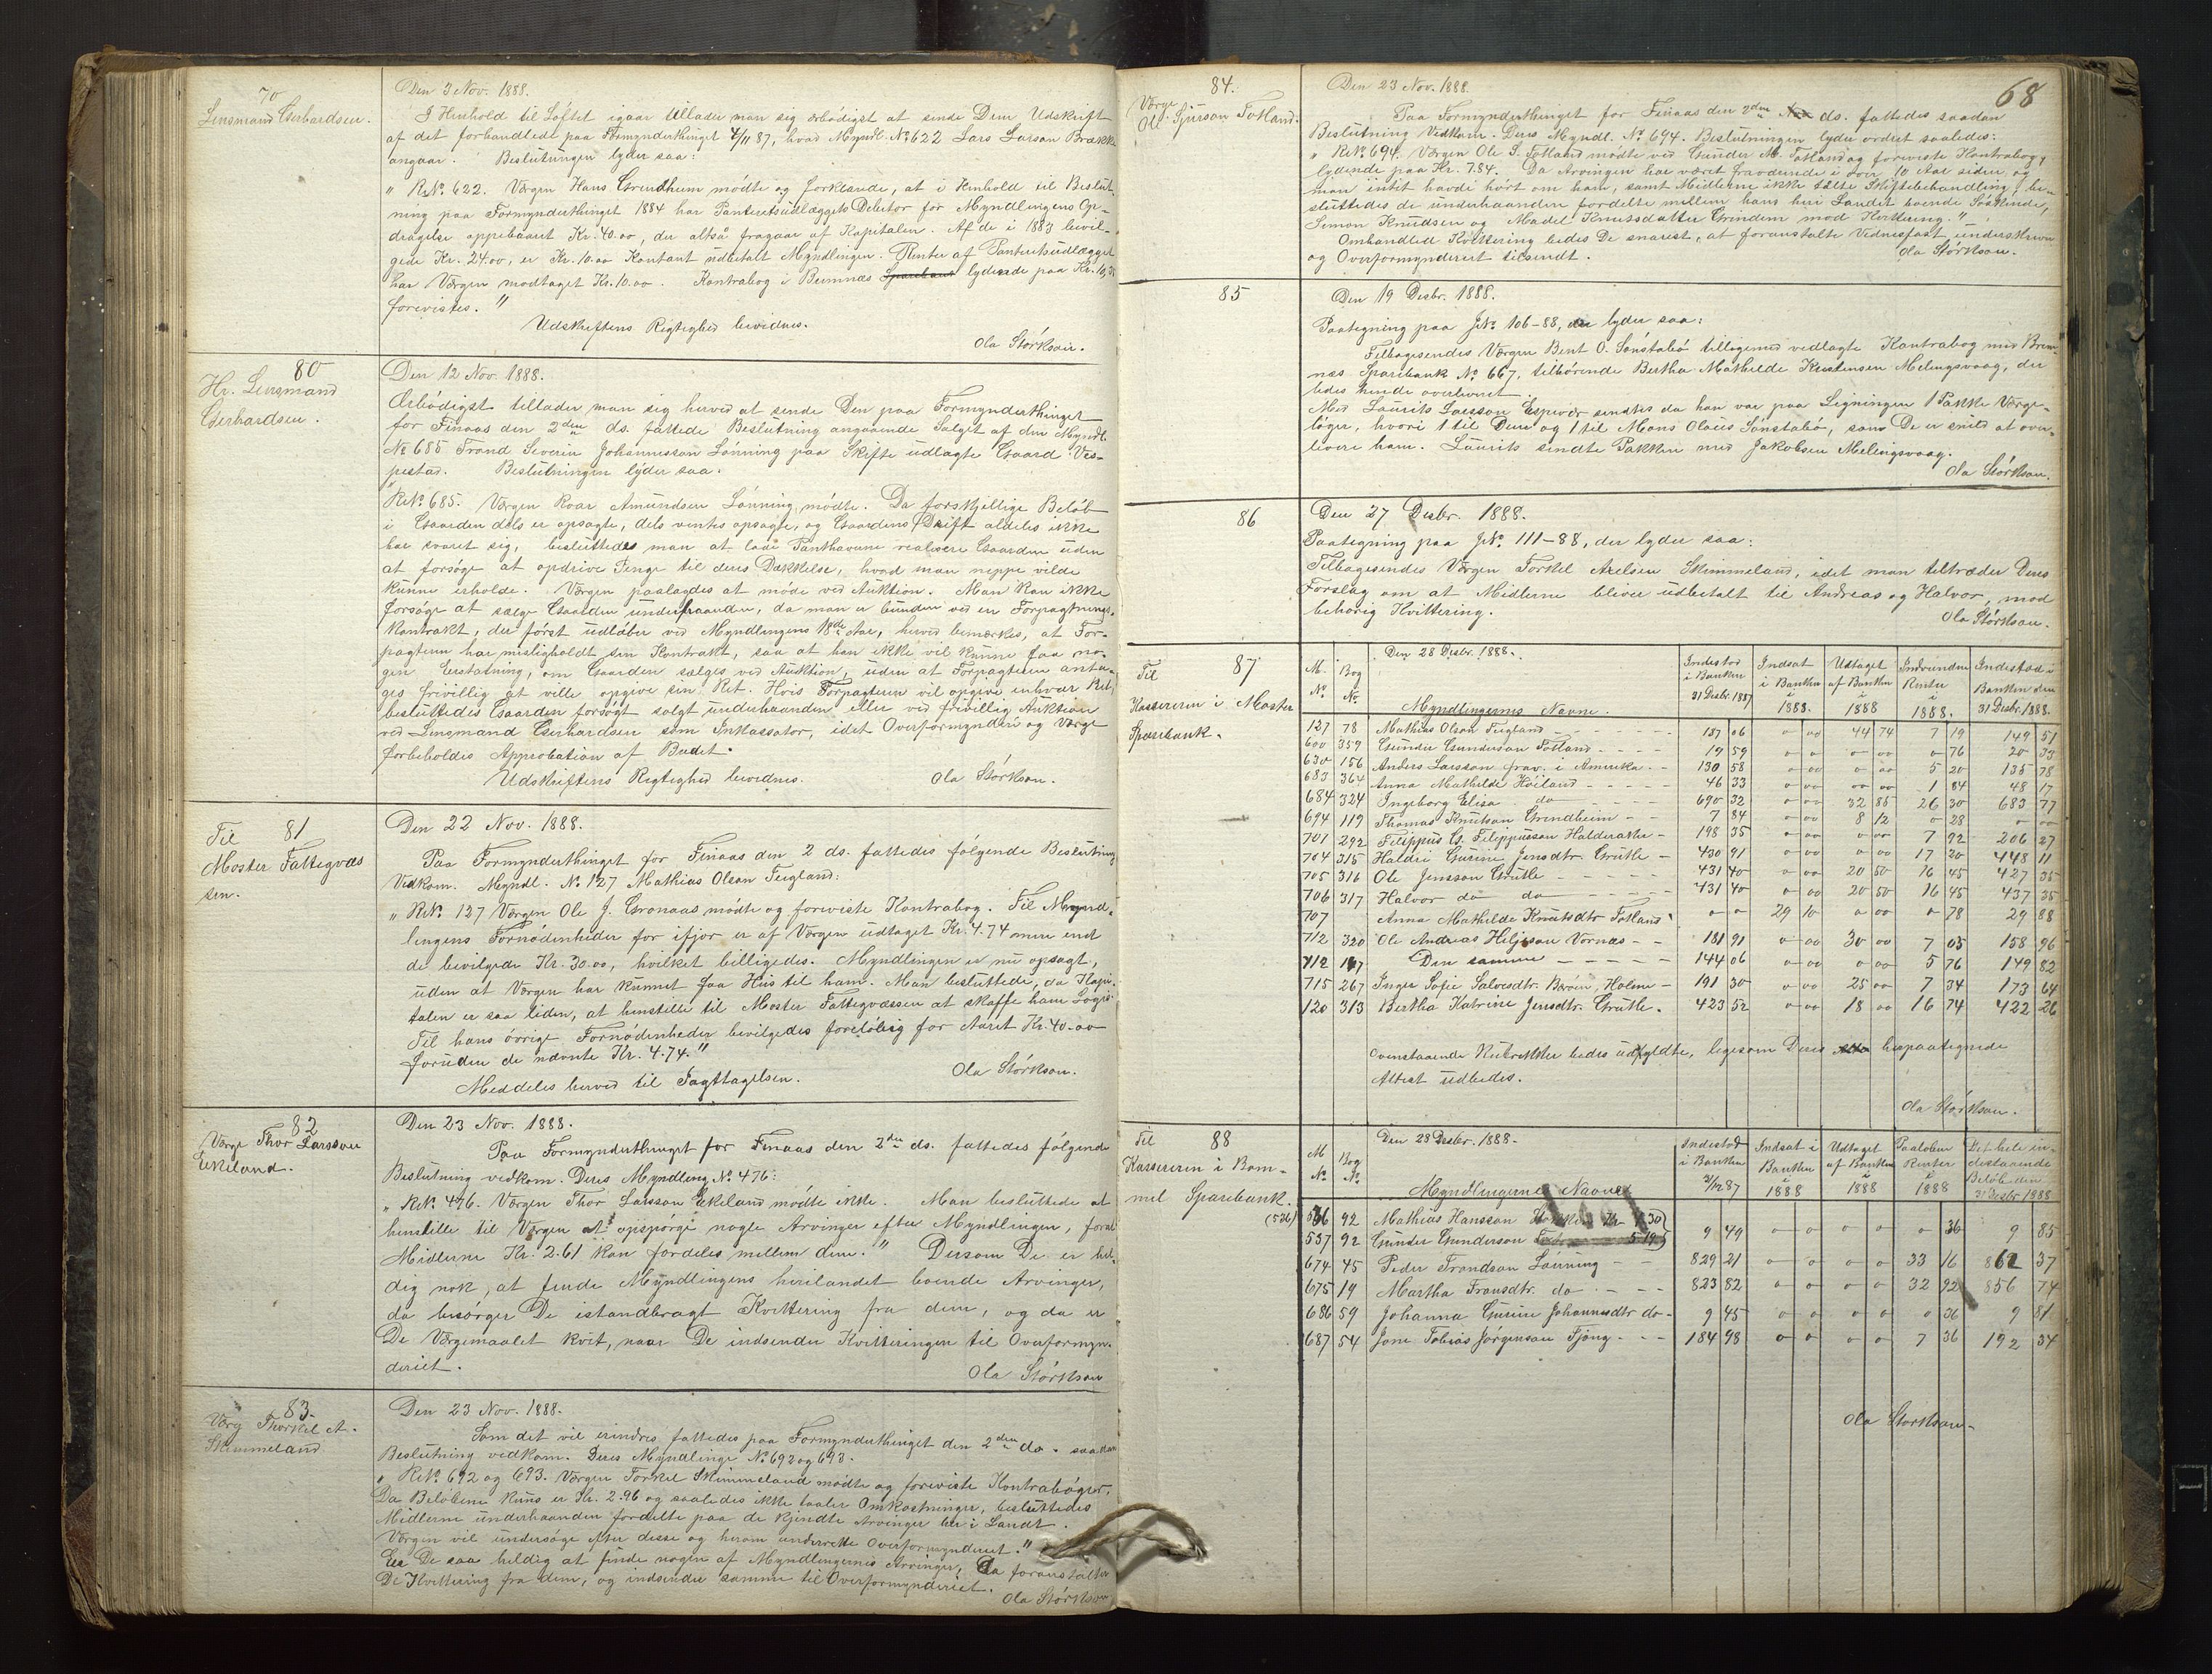 70
Lensmand Gerhardsen.
Den 3 Nov. 1888.
I Henhold til Løftet igaar tillader man sig ærbødigst at sende Dem Udskrift
af det forhandlede paa Formynderthinget 4/11 87, hvad Myndl. No 622 Lars Larson Brække
angaar. Beslutningen lyder saa:
"RNo. 622. Værgen Hans Grindheim mødte og forklarede, at i Henhold til Beslut-
ning paa Formynderthinget 1884 har Panteretsudlæggets Debitor for Myndlingens Op-
dragelse oppebaaret Kr. 40.00, der altsaa fragaar af Kapitalen. Af de i 1883 bevil-
gede Kr. 24.00, er Kr. 10.00 Kontant udbetalt Myndlingen. Renter af Panteretsudlægget
har Værgen modtaget Kr. 10.00. Kontrabog i Bremnæs Sparebank lydende paa Kr. 10,
forevistes."
Udskriftens Rigtighed bevidnes.
Ola Størkson.
80
Hr. Lensmand
Gerhardsen.
Den 12 Nov. 1888.
Ærbødigst tillader man sig herved at sende Den paa Formynderthinget
for Finaas den 2den ds. fattede Beslutning angaaende Salget af den Myndl.
No 685 Trond Severin Johannesson Lønning paa Skifte udlagte Gaard Ves-
pestad. Beslutningen lyder saa:
"RNo. 685. Værgen Roar Amundsen Lønning mødte. Da forskjellige Beløb
i Gaarden dels er opsagte, dels ventes opsagte, og Gaardens Drift aldeles ikke
har svaret sig, besluttedes man at lade Panthaverne realisere Gaarden uden
at forsøge at opdrive Penge til deres Dækkelse, hvad man neppe vilde
kunne erholde. Værgen paalagdes at møde ved Auktion. Man kan ikke
forsøge at sælge Gaarden underhaanden, da man er bunden ved en Forpagtnings-
kontrakt, der først udløber ved Myndlingens 18de Aar, herved bemærkes, at For-
pagteren har misligholdt sin Kontrakt, saa at han ikke vil kunne faa no-
gen Erstatning, om Gaarden sælges ved Auktion, uden at Forpagteren anta-
ges frivillig at ville opgive sin Ret. Hvis Forpagteren vil opgive enhver Ret,
besluttedes Gaarden forsøgt solgt underhaanden eller ved frivillig Auktion
ved Lensmand Gerhardsen som Inkassator, idet Overformynderi og Værge
forbeholdes Approbation af Budet.
Udskriftens Rigtighed bevidnes. Ola Størkson.
81
Til
Moster Fattigvæs
sen.
Den 22 Nov. 1888.
Paa Formynderthinget for Finaas den 2 ds. fattedes følgende Beslutning
Vedkom. Myndl. No 127 Mathias Olson Teigland:
"RNo. 127 Værgen Ole J. Gronaas mødte og foreviste Kontrabog. Til Mynd-
lingens Fornødenheder for ifjor er af Værgen udtaget Kr. 4.74 mere end
de bevilgede Kr. 30.00, hvilket billigedes. Myndlingen er nu opsagt,
uden at Værgen har kunnet faa Hus til ham. Man besluttede, da Kapi-
talen er saa liden, at henstille til Moster Fattigvæssen at skaffe ham Logis.
Til hans øvrige Fornødenheder bevilgedes foreløbig for Aaret Kr. 40.00
foruden de nævnte Kr. 4.74."
Meddeles herved til Iagttagelsen. Ola Størkson.
82
Værge Thor Larsson
Eekeland.
Den 23 Nov. 1888.
Paa Formynderthinget for Finaas den 2den ds. fattedes følgende
Beslutning vedkom. Deres Myndling No 476:
"RNo. 476. Værgen Thor Larsson Eekeland mødte ikke. Man besluttede at
henstille til Værgen at opspørge nogle Arvinger efter Myndlingen, forat
Midlerne Kr. 2.61 kan fordeles mellem dem." Dersom De er hel-
dig nok, at finde Myndlingens herilandet boende Arvinger,
da besørger De istandbragt Kvittering fra dem, og da er
De Værgemaalet kvit, naar De indsender Kvitteringen til Overformyn-
deriet. Ola Størkson
83.
Værg Thorkel A.
Skimmeland
Den 23 Nov. 1888.
Som det vil erindres fattedes paa Formynderthinget den 2den ds. saadan
Beslutning vedkom. Deres Myndlinge No 692 og 693.
"RNo. 692 og 693. Værgen Torkel Skimmeland mødte og foreviste Kontrabøger.
Da Beløbene kuns er Kr. 2.96 og saaledes ikke taaler Omkostninger, besluttedes
Midlerne underhaanden fordelte paa de kjendte Arvinger her i Landt.
Værgen vil undersøge efter disse og herom underrette Overformynderiet."
Er De saa heldig at finde nogen af Myndlingernes Arvinger, da foranstalter
De Kvittering fra dem, og indsender samme til Overformynderiet.
Ola Størkson
68
84.
Værge
Ole Gjerson Totland.
Den 23 Nov. 1888.
Paa Formynderthinget for Finaas den 2den ds. fattedes saadan
Beslutning Vedkom. Deres Myndl. No. 694. Beslutningen lyder ordret saaledes:
"RNo. 694. Værgen Ole G. Totland mødte ved Gunder M. Totland og foreviste Kontrabog,
lydende paa Kr. 7.84. Da Arvingen har været fraværende i over 10 Aar siden og
man intet havde hørt om ham, samt Midlerne ikke taalte Skiftebehandling, be-
sluttedes de underhaanden fordelte mellem hans her i Landet boende Søskende,
Simon Knudsen og Madel Knussdatter Grindem mod Kvittering."
Omhandled Kvittering bedes De snarest, at foranstalte Vidnesfast underskreven
og Overformynderiet tilsendt. Ola Størkson.
85
Den 19 Desbr. 1888.
Paategning paa JNo. 106-88, der lyder saa:
Tilbagesendes Værgen Bent O. Sønstabø tilligemed vedlagte Kontrabog med Brem-
næs Sparebank No. 667, tilhørende Bertha Mathilde Kristensen Melingsvaag, der
bedes hende overleveret.
Med Laurits Larsson Espevær sendtes da han var paa Ligningen 1 Pakke Værge-
bøger, hvori 1 til Dem og 1 til Mons Olaus Sønstabø, som De er snild at over-
levere ham. Laurits sendte Pakken med Jakobsen Melingsvaag.
Ola Størkson.
86
Den 27 Desbr. 1888.
Paategning paa JNo. 111-88, der lyder saa:
Tilbagesendes Værgen Torkel Axelsen Skimmeland, idet man tiltræder Deres
Forslag om at Midlerne bliver udbetalt til Andreas og Halvor, mod
behørig Kvittering. Ola Størkson.
87
Til
Kassereren i Moster
Sparebank.
Den 28 Desbr. 1888.
M. No. Bog No. Myndlingernes Navne. Indestod i Banken 31 Desbr. 1887 Indsat i Banken i 1888. Udtaget af Banken i 1888 Indvunden Renter i 1888. Indestod i Banken den 31 Desbr. 1888.
127 78 Mathias Olson Teigland 187 06 0 00 44 74 7 19 149 51
600 359 Gunder Gunderson Totland 19 59 0 0 0 00 0 76 20 35
630 156 Anders Larsson frav. i Amerika 130 58 0 00 0 00 5 20 135 78
683 364 Anna Mathilde Høiland 46 33 0 00 00 00 1 84 48 17
684 324 Ingeborg Elisa do 690 32 0 00 32 85 26 30 683 77
694 119 Thomas Knutson Grindheim 7 84 0 00 8 12 0 28 0 00
701 292 Filippus G. Filippusson Halderaker 198 35 0 00 0 00 7 92 206 27
704 315 Haldri Gurine Jensdtr. Grutle 430 91 0 00 0 00 17 20 448 11
705 316 Ole Jensson Grutle 431 40 0 00 20 50 16 45 427 35
706 317 Halvor do do 431 40 0 00 20 50 16 45 437 35
707 Anna Mathilde Knutsdtr Totland 0 0 29 10 0 00 0 78 29 88
712 320 Ole Andreas Heljeson Vornæs 181 91 0 00 30 00 7 05 158 96
712 167 Den samme 144 06 0 00 0 00 5 76 149 82
715 267 Inger Sofie Salvesdtr. Børøen, Holme 191 30 0 00 25 00 7 34 173 64
120 313 Bertha Katrine Jensdtr. Grutle. 423 52 0 00 18 00 16 74 422 26
Ovenstaaende Rubrikker bedes udfyldte, ligesom Deres herpaategnede
Attest udbedes.
Ola Størkson.
88
Til
Kassereren i Bøm-
mel Sparebank.
Den 28 Desbr. 1888.
M No. Bog No. Myndlingernes Navne Indestod i Banken 31/12 87 Indsat i Banken i 1888 Udtaget af Banken i 1888 Paaløbne Renter i 1888 Det hele in-destaaende Beløb den 31 Desbr 1888
(526) 536 92 Mathias Hansson 4 30
537 92 Gunder Gunderson 5 19 9 49 0 0 0 0 0 36 9 85
674 45 Peder Trondson Lønning 829 21 0 0 0 0 33 16 862 37
675 19 Martha Tronsdtr. do 823 82 0 0 0 0 32 92 856 74
686 59 Johanna Gurine Johannesdtr do 9 45 0 0 0 0 0 36 9 81
687 54 Jone Tobias Jørgenson Tjong 184 98 0 0 0 0 7 36 192 34
Ola Størkson